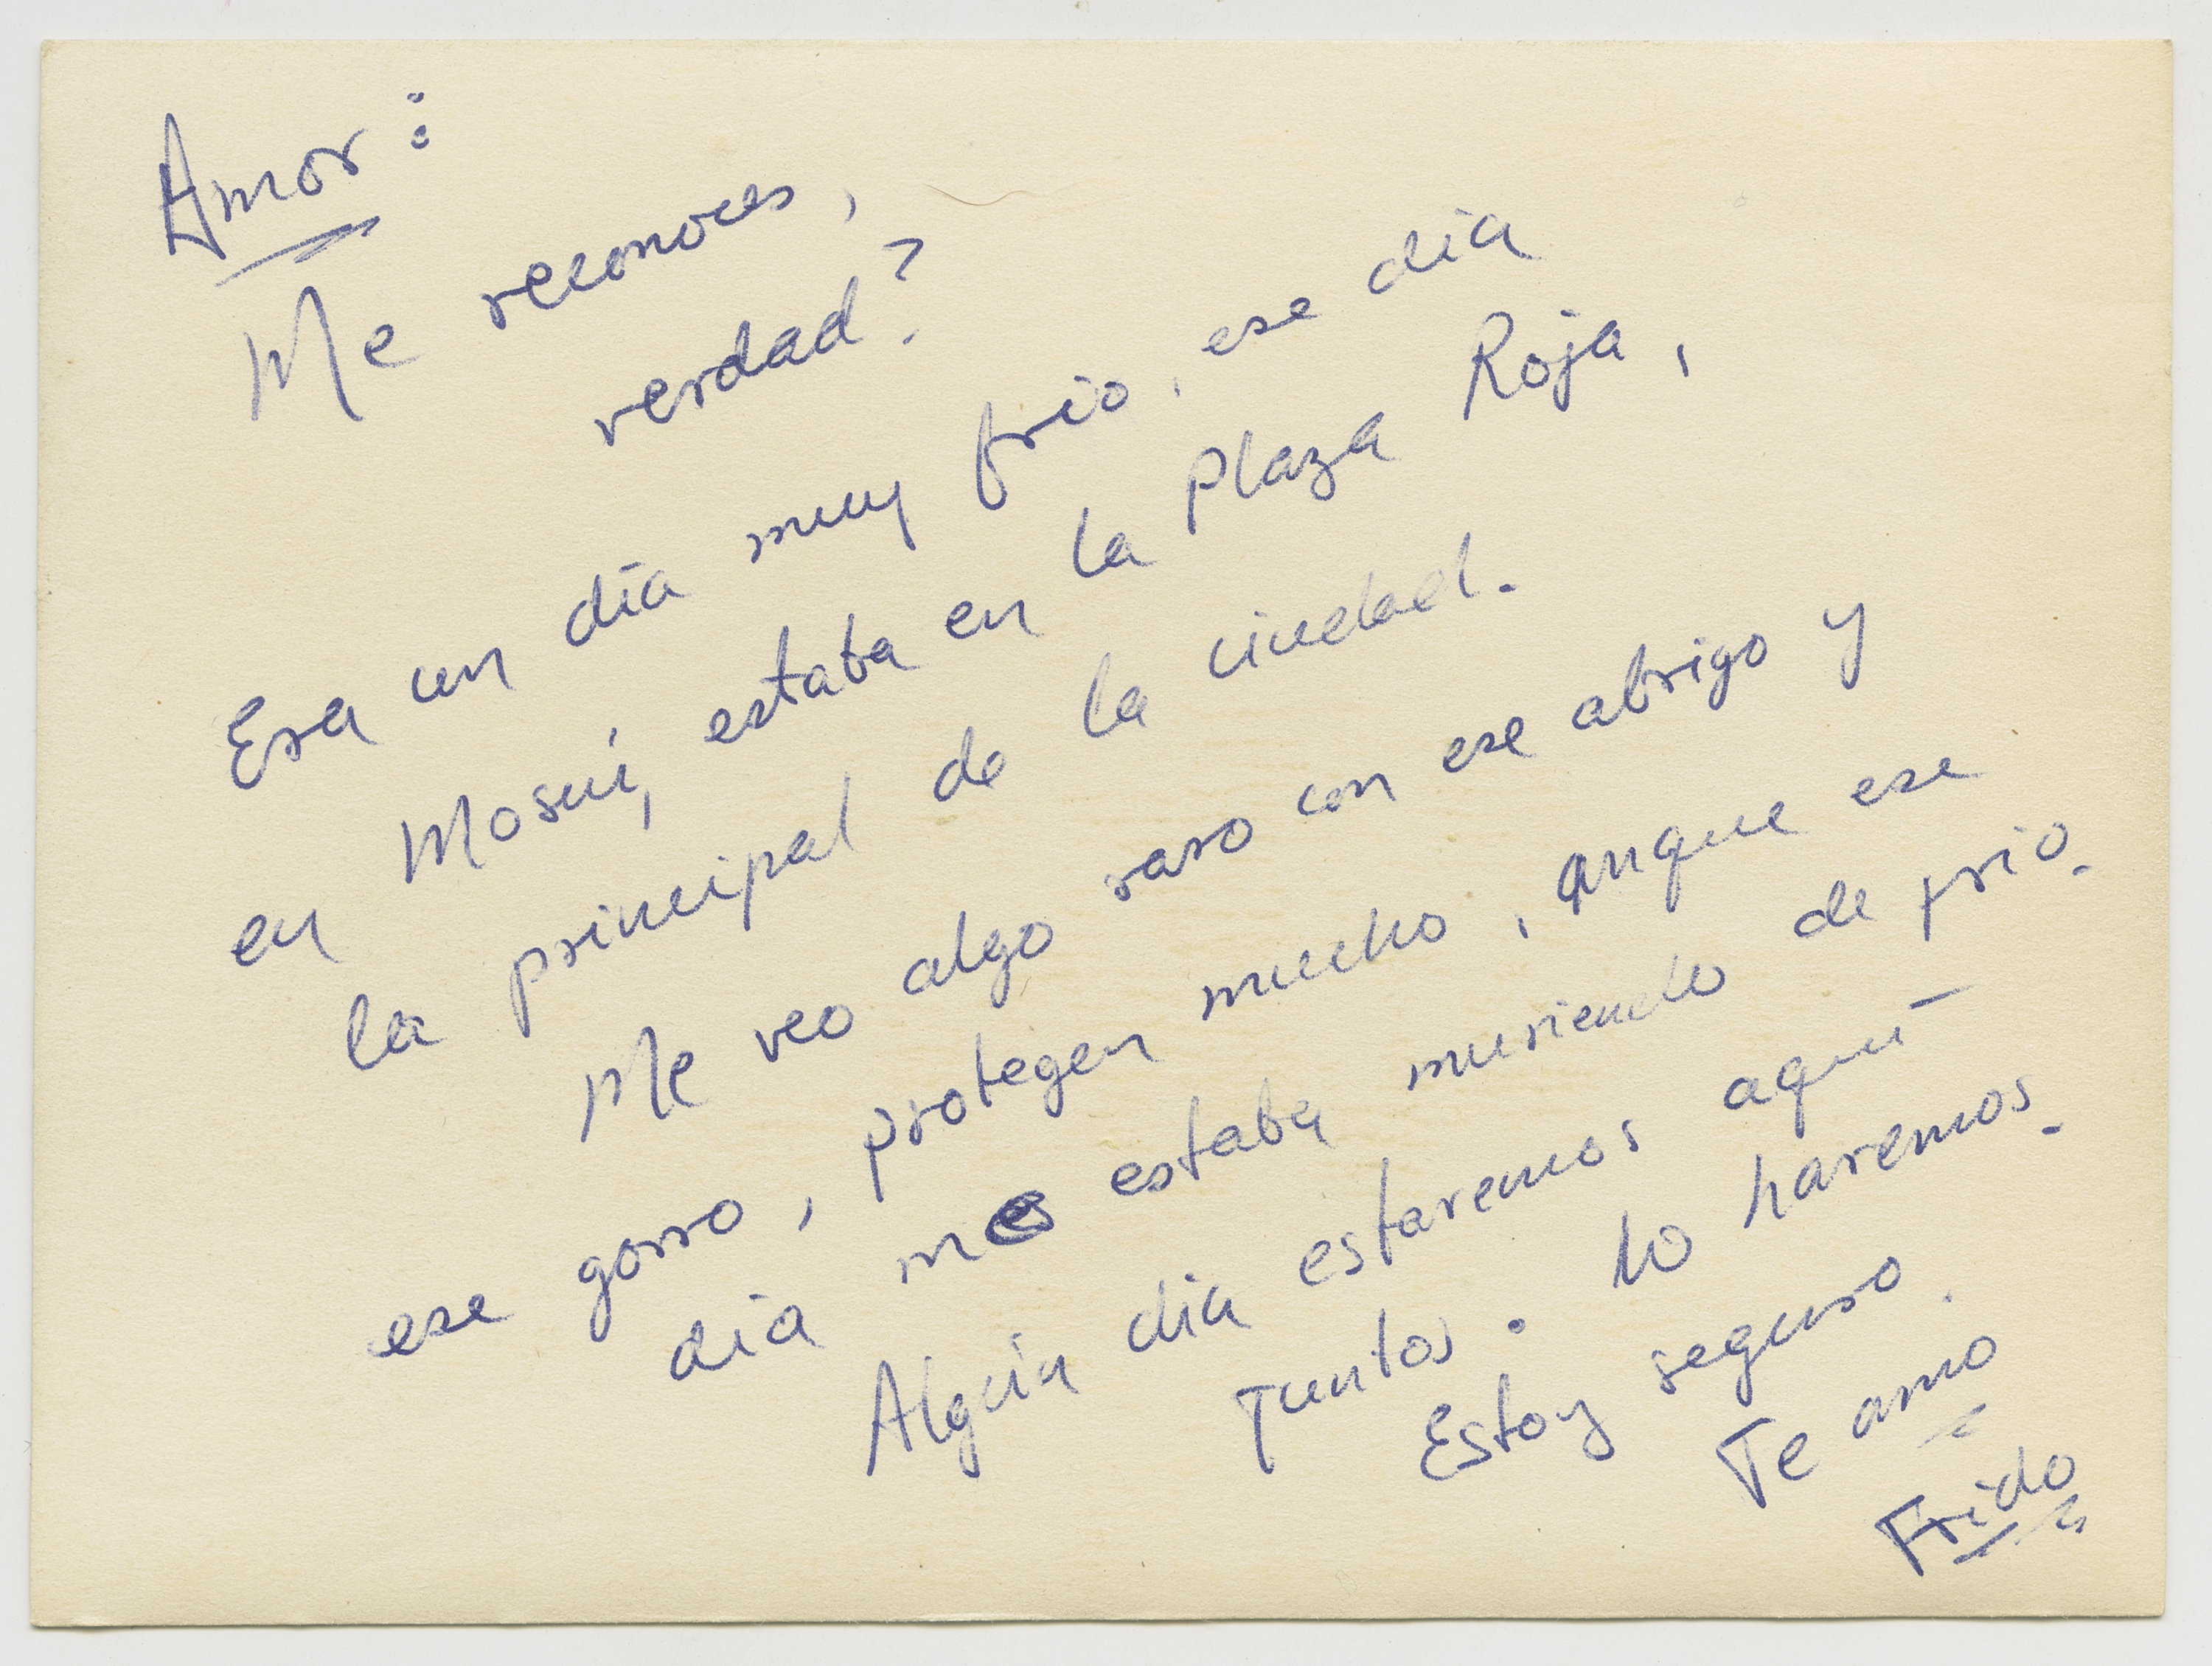 Amor:
Me reconoces,
verdad?
Era un día muy frio, ese dia
en Moscú, estaba en la plaza Roja,
la principal de la ciudad.
Me veo algo raro con ese abrigo y
ese gorro, protegen mucho, anque ese
dia me estaba muriendo de frio.
Algún dia estaremos aquí
juntos. lo haremos.
Estoy seguro.
Te amo
Frido